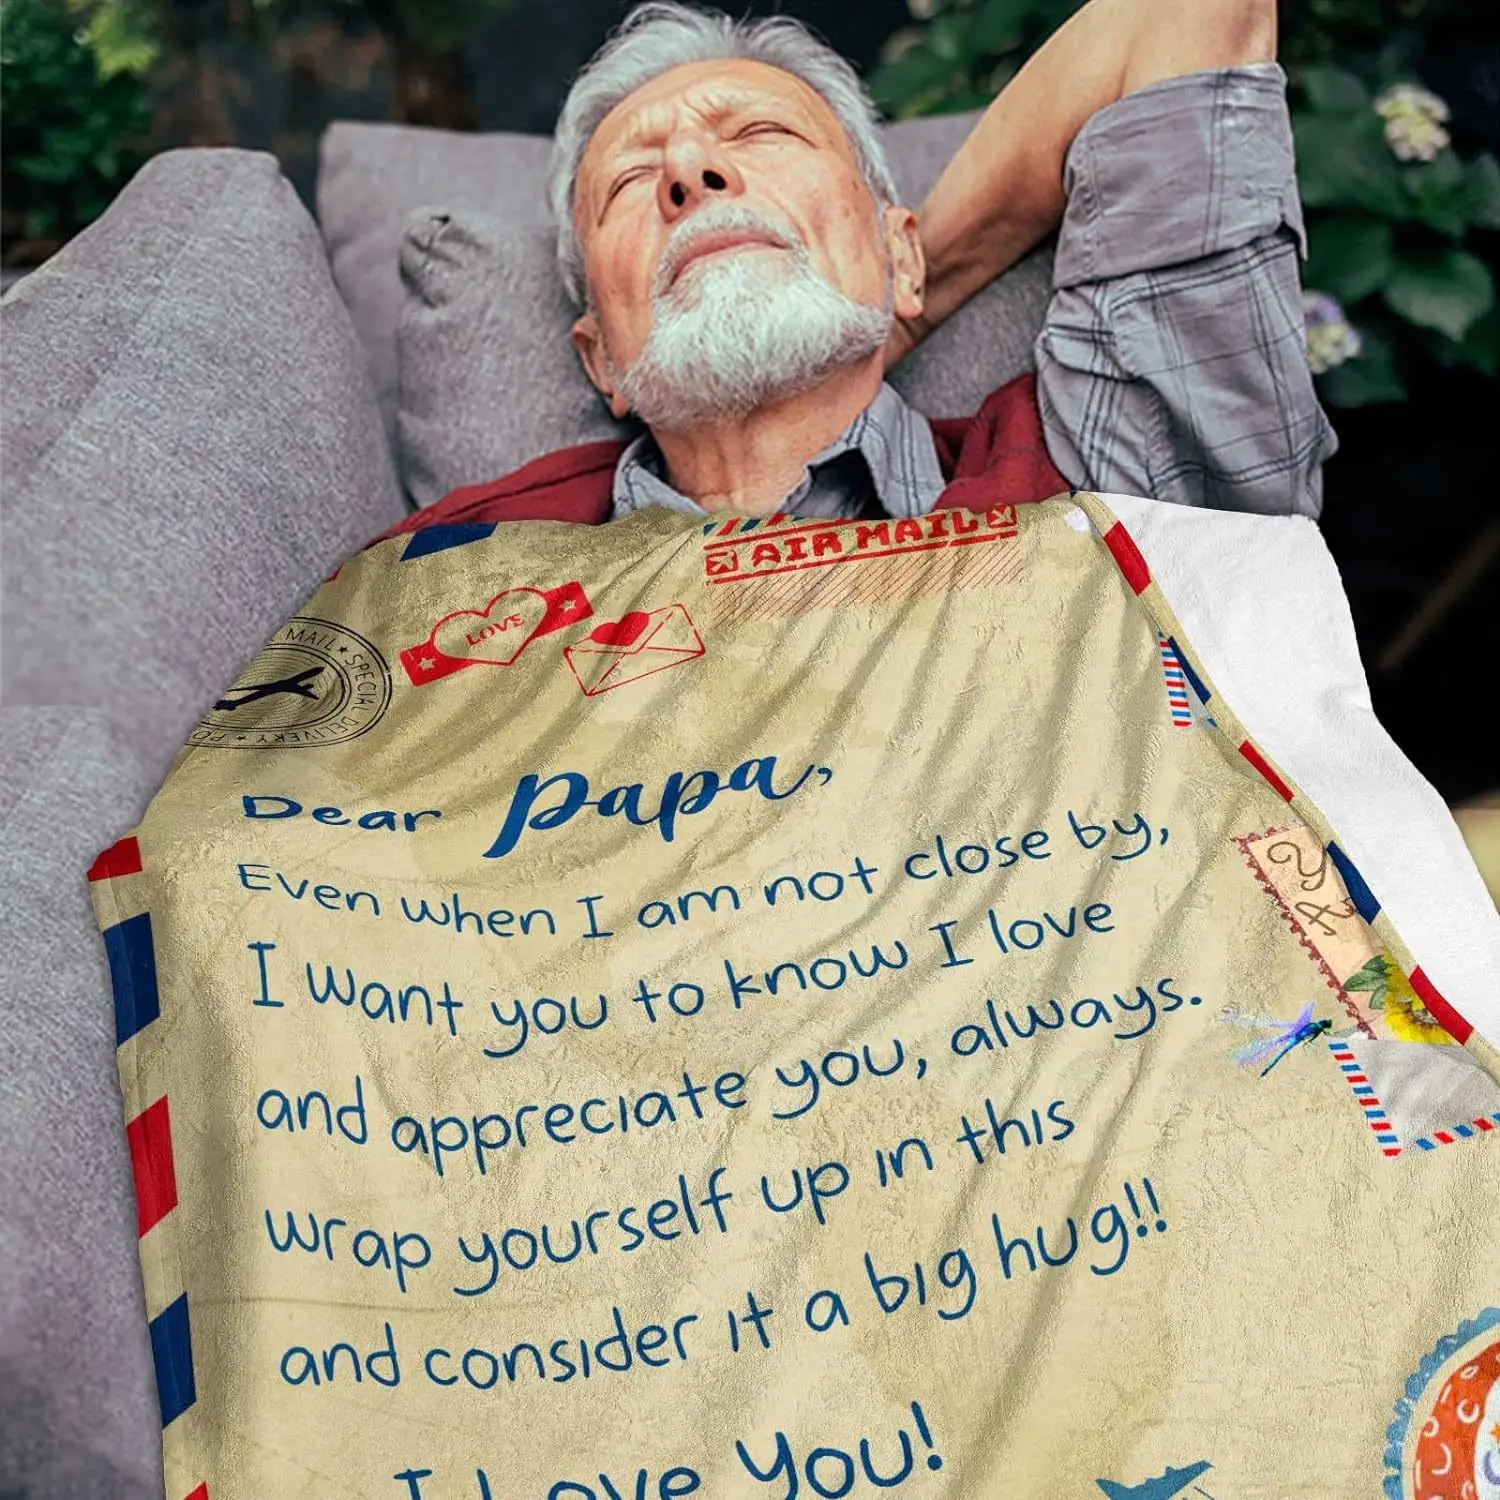 AIR MAIL
LOVE
MAIL ★ SPECIAL DELIVERY ★ PO
Dear Papa,
Even when I am not close by,
I want you to know I love
and appreciate you, always.
wrap yourself up in this
and consider it a big hug!!
I Love You!